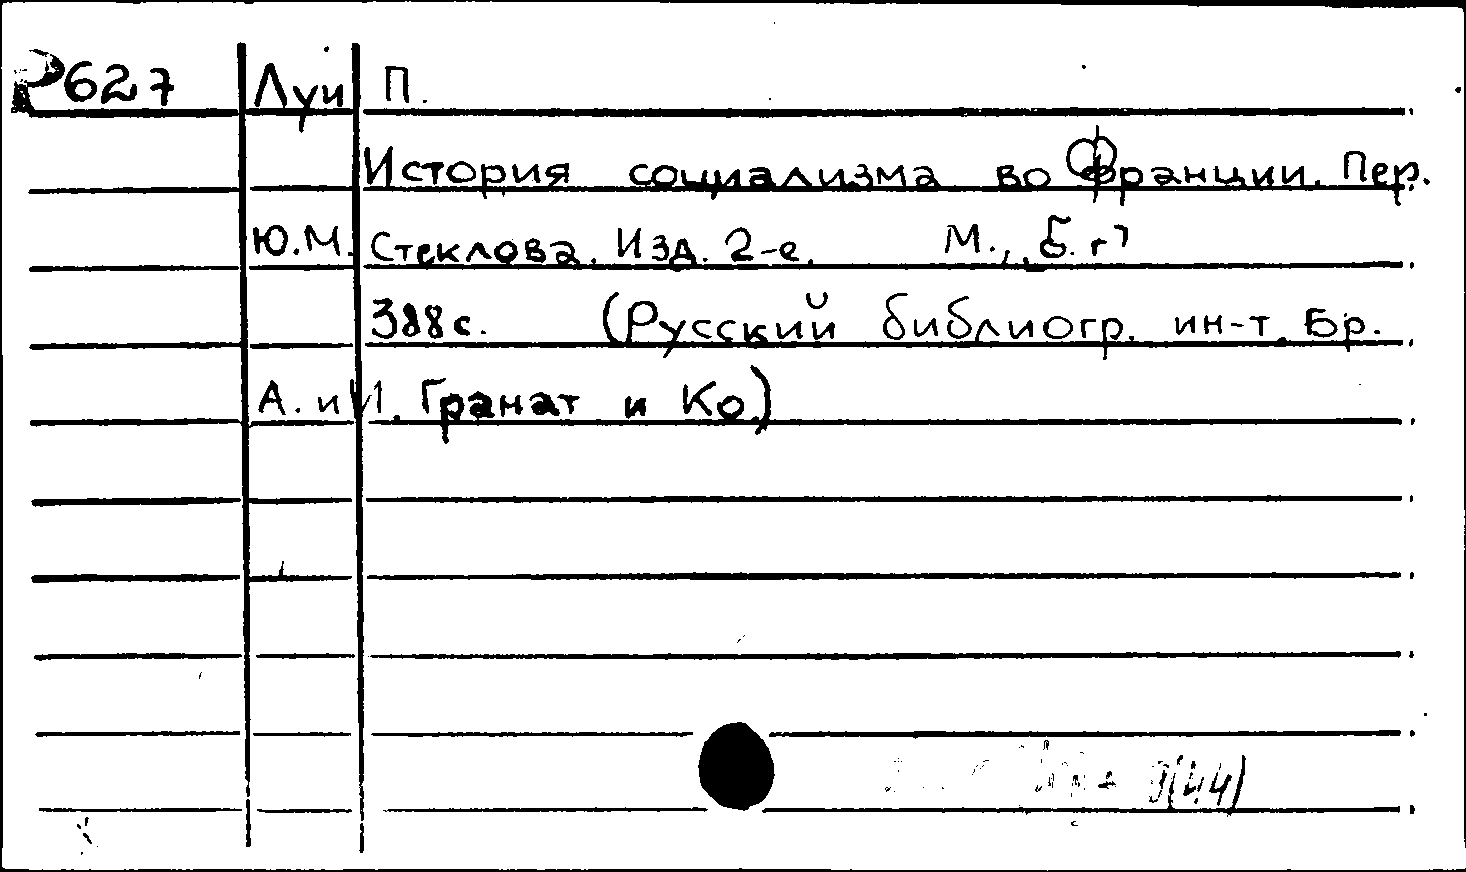 Р627 Луи П.
История социализма во Франции. Пер.
Ю.М. Стеклова. Изд. 2-е. М., Б. г.
388 с. (Русский библиогр. ин-т. Бр.
А. и И. Гранат и Ко)
9(44)